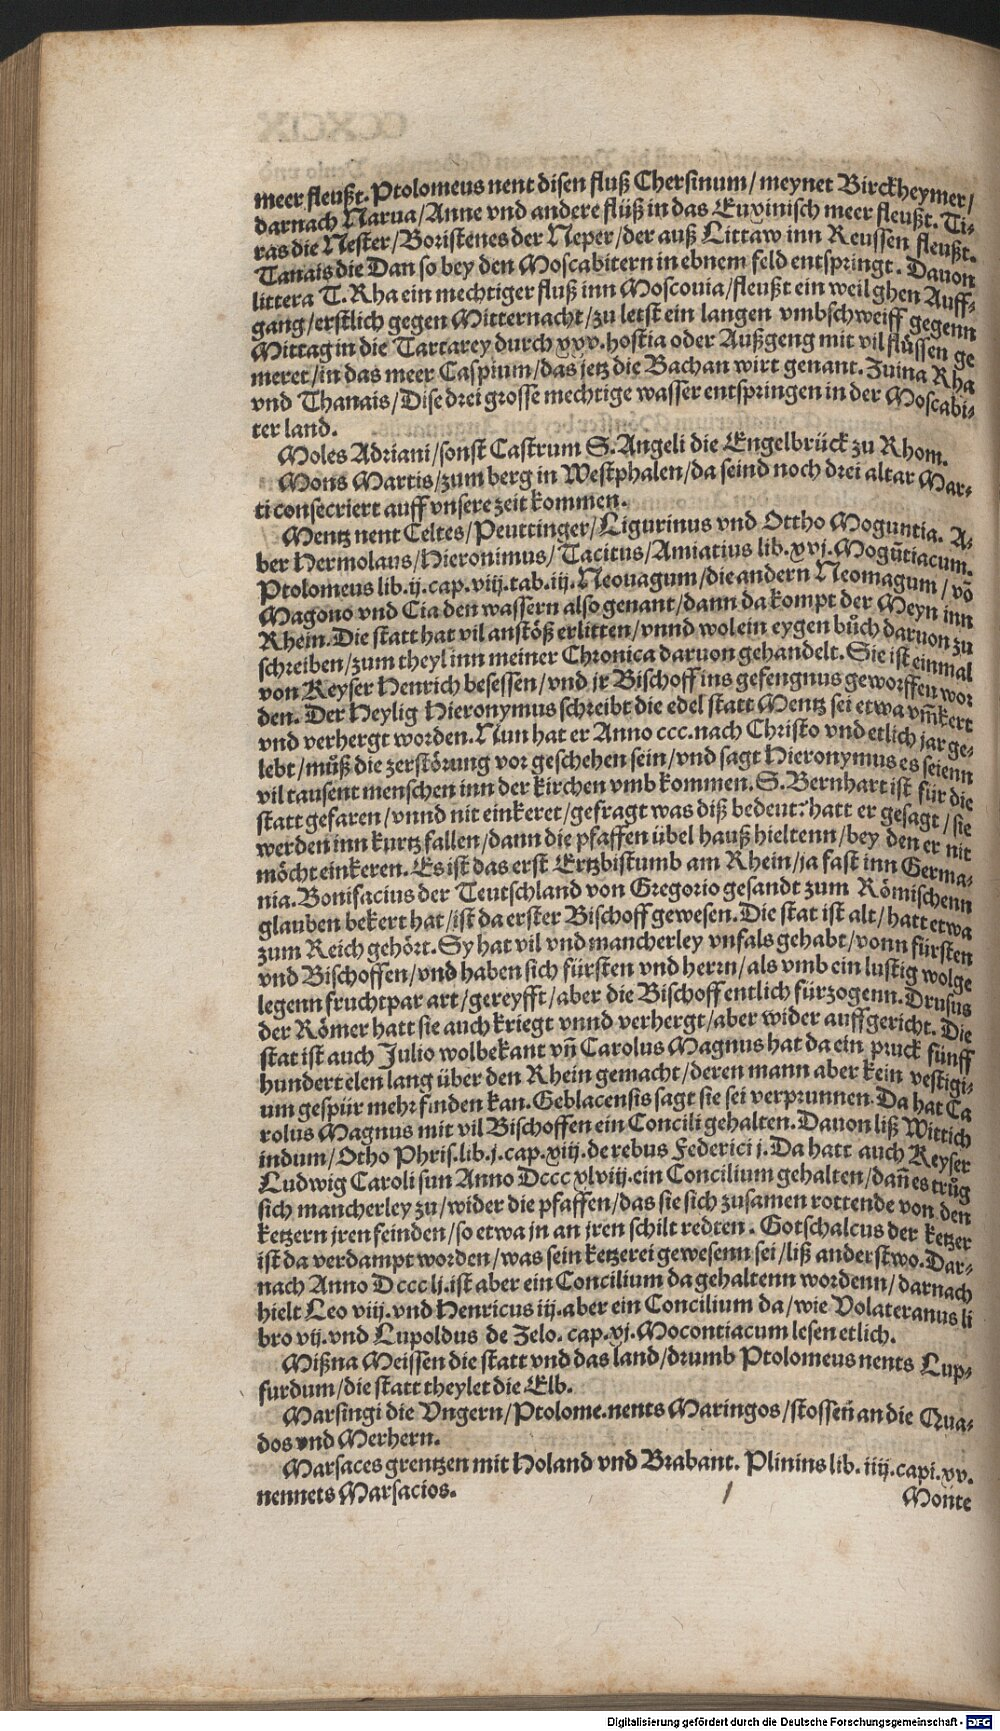 meer fleußt. Ptolomeus nent disen fluß Chersinum/ meynet Birckheymer/
darnach Narua/ Anne vnd andere flüß in das Euxinisch meer fleußt. Ti-
ras die Nester/ Boristenes der Neper/ der auß Littaw inn Reussen fleußt.
Tanais die Dan so bey den Moscabitern in ebnem feld entspringt. Dauon
littera T. Rha ein mechtiger fluß inn Mosconia/ fleußt ein weil ghen Auff-
gang/ erstlich gegen Mitternacht/ zu letst ein langen vmbschweiff gegenn
Mittag in die Tartarey durch xxv. hostia oder Außgeng mit vil flüssen ge
meret/ in das meer Caspium/ das jetz die Bachan wirt genant. Zuina Rha
vnd Thanais/ Dise drei grosse mechtige wasser entspringen in der Moscabi-
ter land.
Moles Adriani/ sonst Castrum S. Angeli die Engelbrück zu Rhom.
Mons Martis/ zum berg in Westphalen/ da seind noch drei altar Mar-
ti consecriert auff vnsere zeit kommen.
Mentz nent Celtes/ Peuttinger/ Ligurinus vnd Ottho Moguntia. A-
ber Hermolaus/ Hieronimus/ Tacitus/ Amiatius lib. xvj. Mogūtiacum.
Ptolomeus lib. ij. cap. viij. tab. iij. Neouagum/ die andern Neomagum/ vō
Magono vnd Cia den wassern also genant/ dann da kompt der Meyn inn
Rhein. Die statt hat vil anstöß erlitten/ vnnd wol ein eygen bůch daruon zu
schreiben/ zum theyl inn meiner Chronica daruon gehandelt. Sie ist einmal
von Keyser Henrich besessen/ vnd jr Bischoff ins gefengnus geworffen wor
den. Der Heylig Hieronymus schreibt die edel statt Mentz sei etwa vm̄kert
vnd verhergt worden. Nun hat er Anno ccc. nach Christo vnd etlich jar ge-
lebt/ můß die zerstörung vor geschehen sein/ vnd sagt Hieronymus es seienn
vil tausent menschen inn der kirchen vmb kommen. S. Bernhart ist für die
statt gefaren/ vnnd nit einkeret/ gefragt was diß bedeut: hatt er gesagt/ sie
werden inn kurtz fallen/ dann die pfaffen übel hauß hieltenn/ bey den er nit
möcht einkeren. Es ist das erst Ertzbistumb am Rhein/ ja fast inn Germa-
nia. Bonifacius der Teutschland von Gregorio gesandt zum Römischenn
glauben bekert hat/ ist da erster Bischoff gewesen. Die stat ist alt/ hatt etwa
zum Reich gehört. Sy hat vil vnd mancherley vnfals gehabt/ vonn fürsten
vnd Bischoffen/ vnd haben sich fürsten vnd herrn/ als vmb ein lustig wolge
legenn fruchtpar art/ gereyfft/ aber die Bischoff entlich fürzogenn. Drusus
der Römer hatt sie auch kriegt vnnd verhergt/ aber wider auffgericht. Die
stat ist auch Julio wolbekant vn̄ Carolus Magnus hat da ein pruck fünff
hundert elen lang über den Rhein gemacht/ deren mann aber kein vestigi-
um gespür mehr finden kan. Geblacensis sagt sie sei verprunnen. Da hat Ca
rolus Magnus mit vil Bischoffen ein Concili gehalten. Dauon liß Wittich
indum/ Otho Phris. lib. j. cap. xiij. de rebus Federici j. Da hatt auch Keyser
Ludwig Caroli sun Anno Dccc xlviij. ein Concilium gehalten/ dañ es trůg
sich mancherley zu/ wider die pfaffen/ das sie sich zusamen rottende von den
ketzern jren feinden/ so etwa jn an jren schilt redten. Gotschalcus der ketzer
ist da verdampt worden/ was sein ketzerei gewesenn sei/ liß anderstwo. Dar-
nach Anno Dccc lj. ist aber ein Concilium da gehaltenn wordenn/ darnach
hielt Leo viij. vnd Henricus iij. aber ein Concilium da/ wie Volateranus li
bro vij. vnd Lupoldus de Zelo. cap. vj. Mocontiacum lesen etlich.
Mißna Meissen die statt vnd das land/ drumb Ptolomeus nents Lup-
furdum/ die statt theylet die Elb.
Marsingi die Vngern/ Ptolome. nents Maringos/ stossen̄ an die Qua-
dos vnd Merhern.
Marsaces grentzen mit Holand vnd Brabant. Plinins lib. iiij. capi. xv.
nennets Marsacios.
Monte
Digitalisierung gefördert durch die Deutsche Forschungsgemeinschaft - DFG